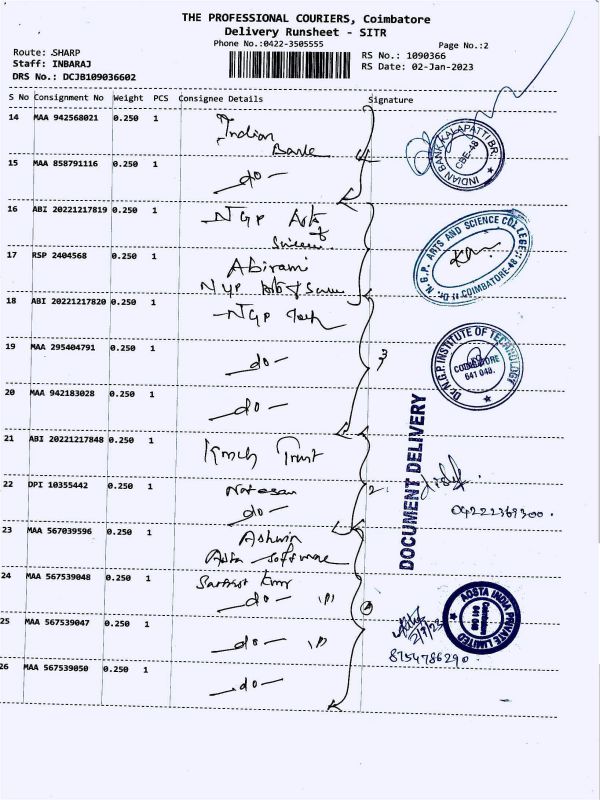 THE PROFESSIONAL COURIERS, Coimbatore
Delivery Runsheet - SITR
Phone No.:0422-3505555
Page No.:2
Route: SHARP
Staff: INBARAJ
DRS No.: DCJB109036602
RS No.: 1090366
RS Date: 02-Jan-2023
S No Consignment No Weight PCS Consignee Details Signature
14 MAA 942568021 0.250 1 Indian Bank
INDIAN BANK KALAPATTI BR. CBE-48
15 MAA 858791116 0.250 1 -do-
16 ABI 20221217819 0.250 1 NGP Arts &
Dr. N.G.P. ARTS AND SCIENCE COLLEGE COIMBATORE-48
17 RSP 2404568 0.250 1 Abirami
NGP
18 ABI 20221217820 0.250 1 -NGP Tech
Dr. N.G.P. INSTITUTE OF TECHNOLOGY COIMBATORE 641 048.
3
19 MAA 295404791 0.250 1 -do-
20 MAA 942183028 0.250 1 -do-
21 ABI 20221217848 0.250 1 Kmch Trust
DOCUMENT DELIVERY
22 DPI 10355442 0.250 1 Natesan
-do-
2
04222369300.
23 MAA 567039596 0.250 1 Ashwin
Aosta Software
24 MAA 567539048 0.250 1
-do-
AOSTA INDIA PRIVATE LIMITED Coimbatore 641 048
25 MAA 567539047 0.250 1 -do-
8754786290.
26 MAA 567539050 0.250 1 -do-